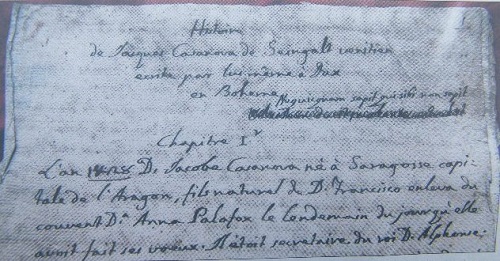 Histoire
de Jacques Casanova de Seingalt venitien
ecrite par lui même à Dux
en Boheme
Nequicquam sapit qui sibi non sapit
Chapitre Iʳ
L'an 1428 D. Jacobe Casanova né à Saragosse capi-
tale de l'Aragon, fils naturel de D. Francisco enleva du
couvent D.ª Anna Palafox le lendemain du jour qu'elle
avoit fait ses vœux. Il étoit secretaire du roi D. Alphonse.